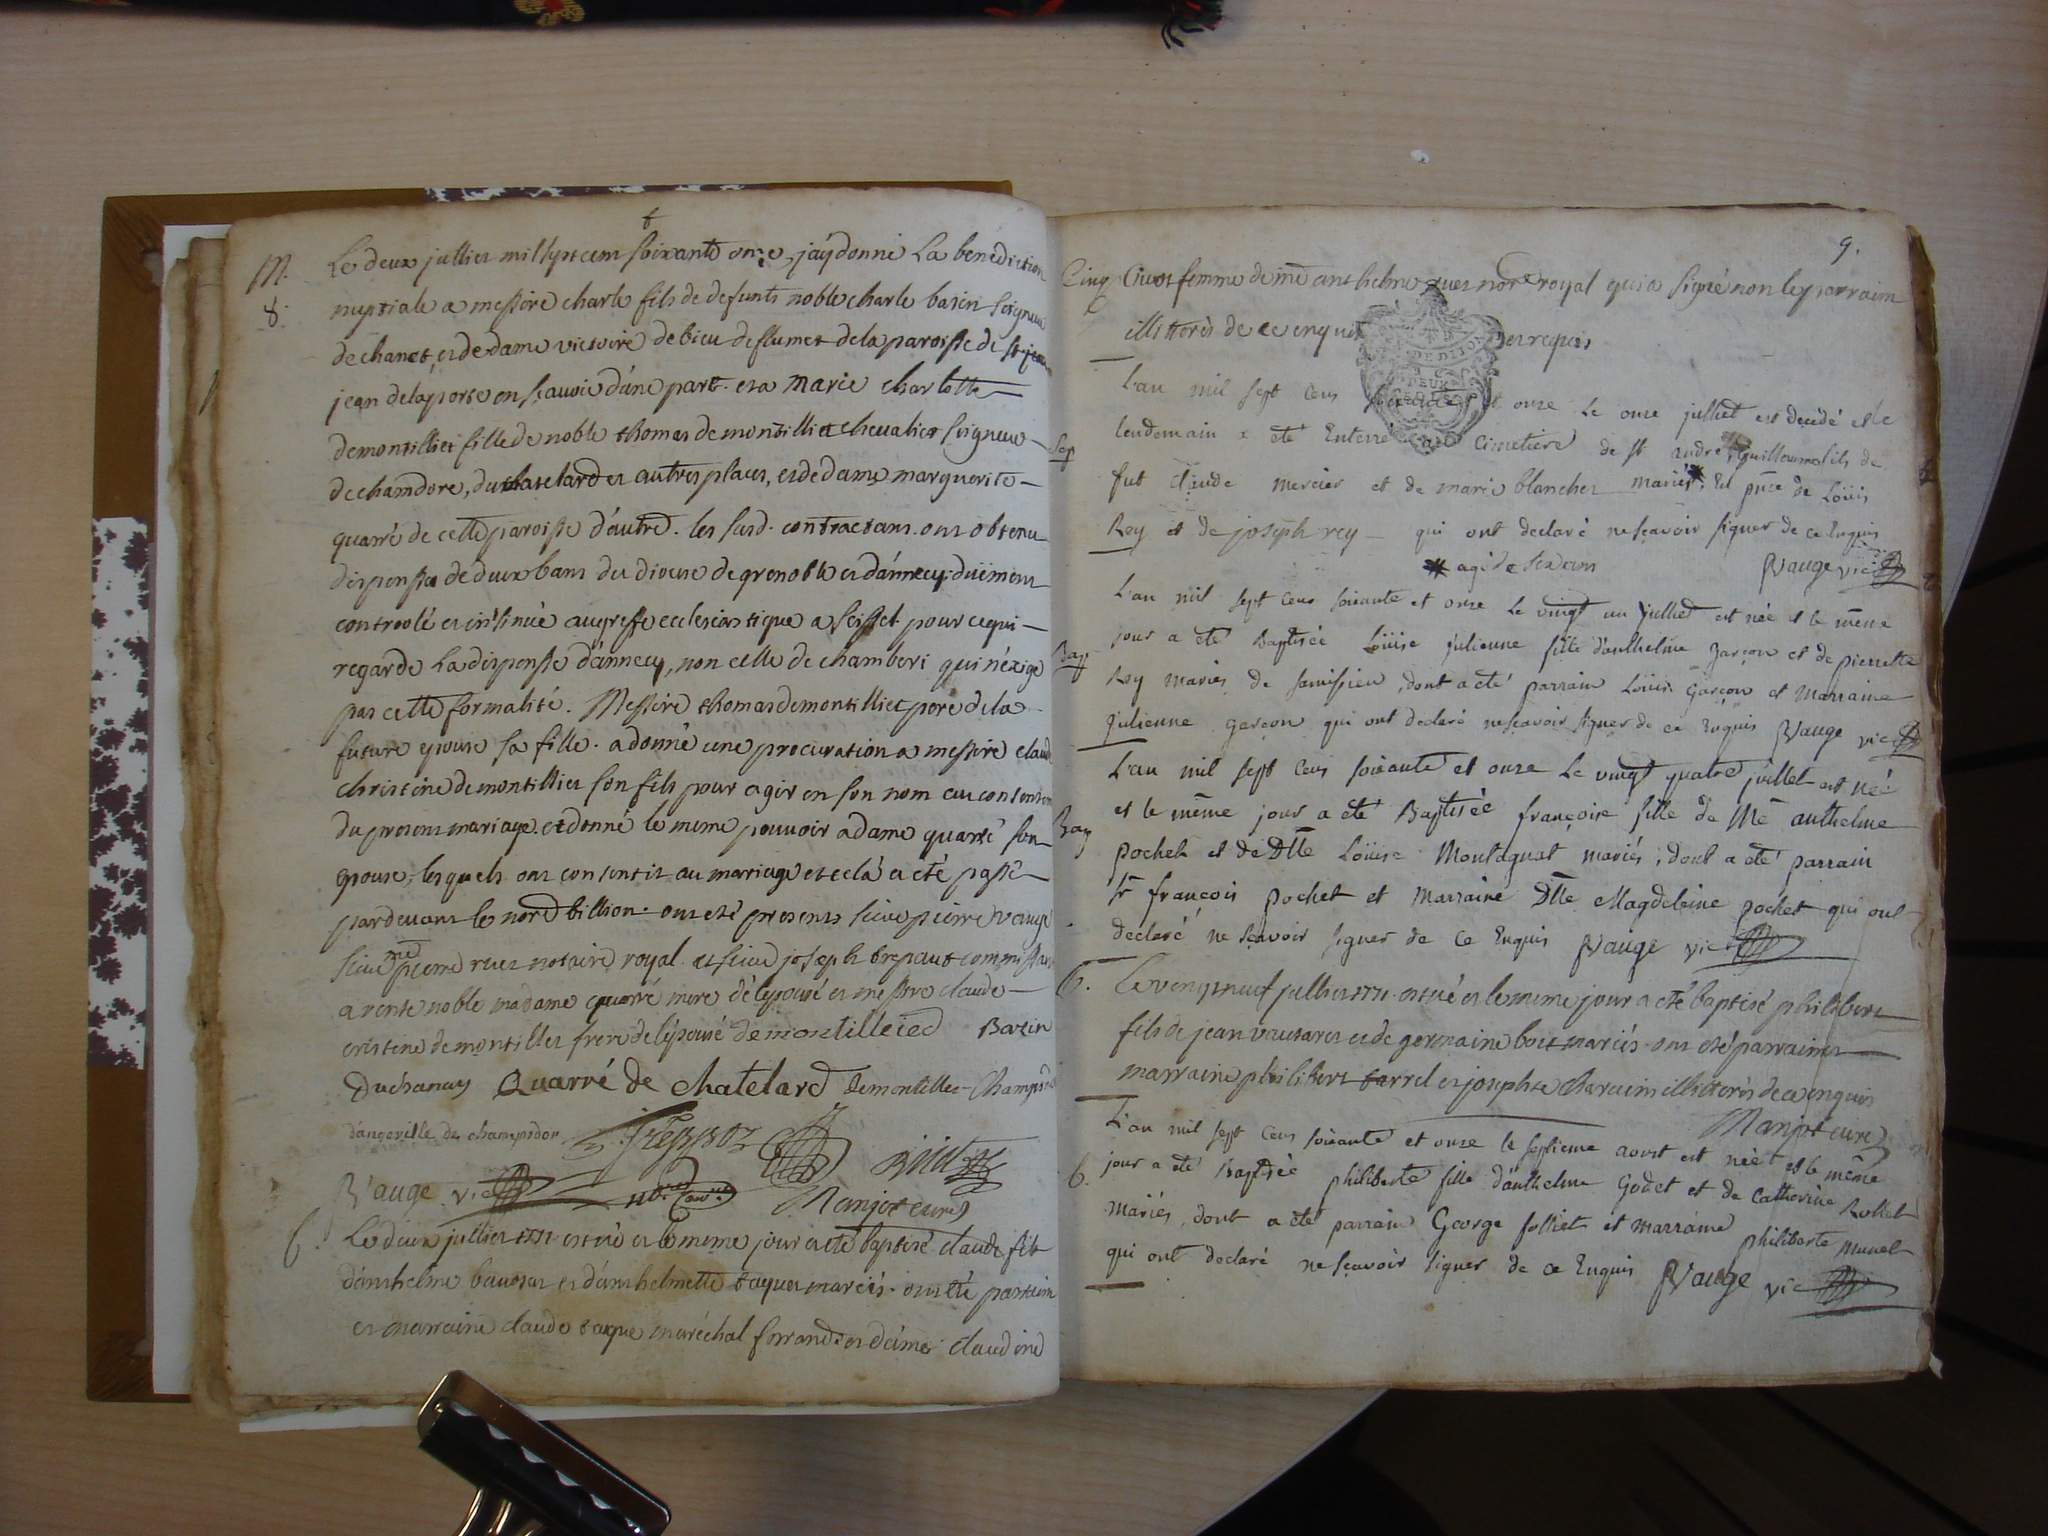 8
M. Le deux jullier mil sept cens soixante onze, j'ay donné La benediction
8. nuptiale a messire charle fils de defunts noble charle bazin seigneur
de chanet et de dame victoire de bieu de flumet de la paroisse de st jean
jean de la porte en sçauoie d'une part. et a Marie charlotte
demontilliet fille de noble thomas demontilliet cheualier seigneur
de chamdore, du chatelard et autres places, et de dame marguerite
quarré de cette paroisse d'autre. les susd. contractans ont obtenu
dispense de deux bans du diocese de grenoble et d'annecy duëment
controolé et insinué au greffe ecclesiastique a seissel pour ce qui
regarde La dispense d'annecy, non celle de chamberi qui n'exige
pas cette formalité. Messire thomas demontilliet pere de la
future epouse sa fille. a donné une procuration a messire claude
christine demontillier son fils pour agir en son nom au
du present mariage. et donné le meme pouvoir a dame quarré son
epouse, lesquels ont consentit au mariage et cela a eté passé
pardeuant le nore billion. ont eté presents sieur pierre vauge
sieur pierre reuet notaire royal et sieur joseph trepaut
a rente noble madame quarré mere de l'epouse et messire claude
cristine demontillet frere de l'epouse demontilleied Bazin
Duchanay Quarré de Chatelard demontillet-Champrd
dangeville de champrdon
R Vauge vic Manjot curé
b. Le deux jullier 1771 est né et le meme jour a eté baptisé claude fils
d'anthelme et d'anthelmette taques mariés. ont eté parrain
et marraine claude taque maréchal ferrand et dame claudine
9.
Cinq femme de me anthelme reuet nore royal qui a signé non le parrain
illitterés de ce enquis et requis
L'an mil sept cens soixante et onze Le onze julliet est decedé et le
Sep lendemain a eté Enterré au Cimetiere de st andré, guillaume fils de
fut claude mercier et de marie blanchet mariés, En pnce de Loüis
Rey et de joseph rey qui ont declaré ne sçavoir signer de ce Enquis
agé de six ans R Vauge vic
L'an mil sept Cens soixante et onze Le vingt un julliet est née et le même
Bap jour a eté Baptisée Loüise julienne fille d'anthelme garçon et de pierrette
Rey mariés de samissieu, dont a eté parrain Loüis Garçon et marraine
julienne garçon qui ont declaré ne sçavoir signer de ce Enquis R Vauge vic
L'an mil sept Cens soixante et onze Le vingt quatre juillet est née
Bap et le même jour a eté Baptisée françoise fille de Me anthelme
pochet et de Dlle Loüise Montagnat mariés; dont a eté parrain
sr françois pochet et marraine Dlle Magdeleine pochet qui ont
declaré ne sçavoir signer de Ce Enquis R Vauge vic
b. Le vengt neuf jullier 1771 est né et le meme jour a eté baptisé philibert
fils de jean et de germaine mariés ont eté parrain et
marraine philibert et josephte illitterés de ce enquis
Manjot curé
L'an mil sept Cens soixante et onze le septieme aoust est née et le même
b. jour a eté Baptisée philiberte fille d'anthelme Godet et de Catherine Rollet
mariés, dont a eté parrain George folliet et marraine philiberte
qui ont declaré ne sçavoir signer de ce Enquis R Vauge vic